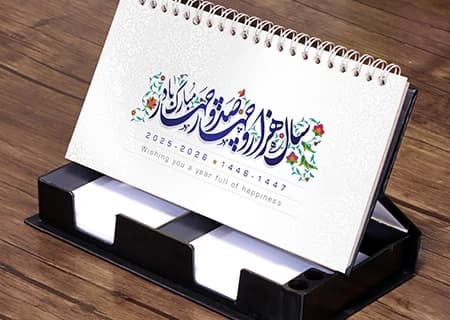 سال هزار و چهارصد و چهار مبارک باد
2025-2026 • 1446-1447
Wishing you a year full of happiness